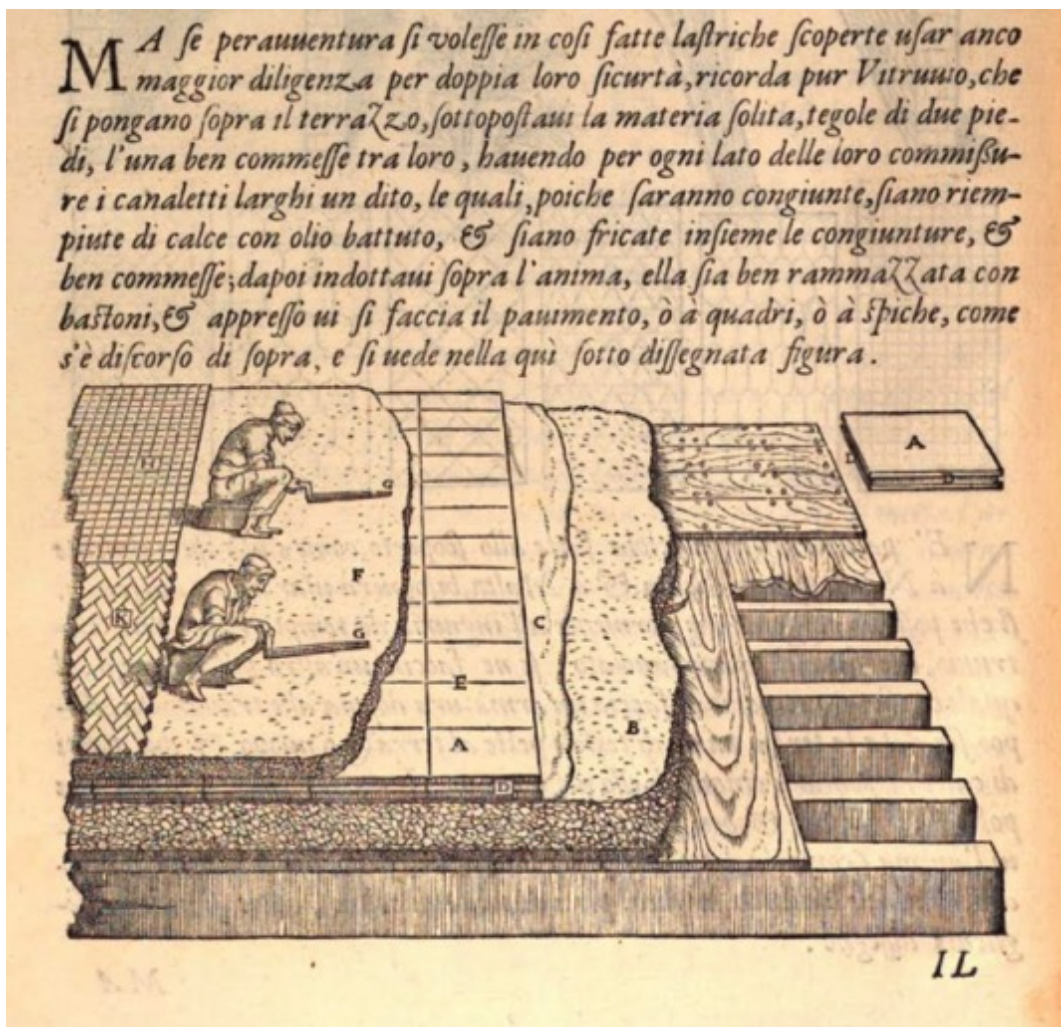 MA ſe perauuentura ſi voleſſe in coſi fatte laſtriche ſcoperte uſar anco
maggior diligenza per doppia loro ſicurtà, ricorda pur Vitruuio, che
ſi pongano ſopra il terrazzo, ſottopoſtaui la materia ſolita, tegole di due pie-
di, l'una ben commeſſe tra loro, hauendo per ogni lato delle loro commiſsu-
re i canaletti larghi un dito, le quali, poiche ſaranno congiunte, ſiano riem-
piute di calce con olio battuto, & ſiano fricate inſieme le congiunture, &
ben commeſſe; dapoi indottaui ſopra l'anima, ella ſia ben rammazzata con
baſtoni, & appreſſo ui ſi faccia il pauimento, ò à quadri, ò à ſpiche, come
s'è diſcorſo di ſopra, e ſi uede nella quì ſotto diſſegnata figura.
A
D
H
G
F
K
G
C
E
B
A
D
IL